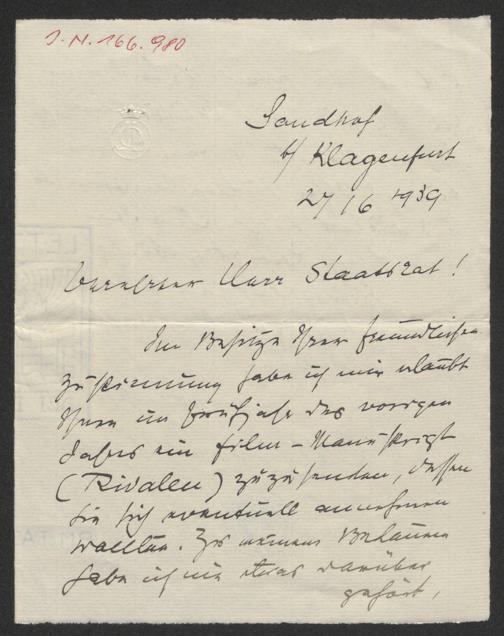 J.N. 166.980
Sandhof
b/ Klagenfurt
27/6 1939
Verehrter Herr Staatsrat!
Im Besitze Ihrer freundlichen
Zustimmung habe ich mir erlaubt
Ihnen im Frühjahr des vorigen
Jahres ein Film-Manuskript
(Rivalen) zuzusenden, dessen
Sie sich eventuell annehmen
wollten. Zu meinem Bedauern
habe ich nie etwas darüber
gehört,